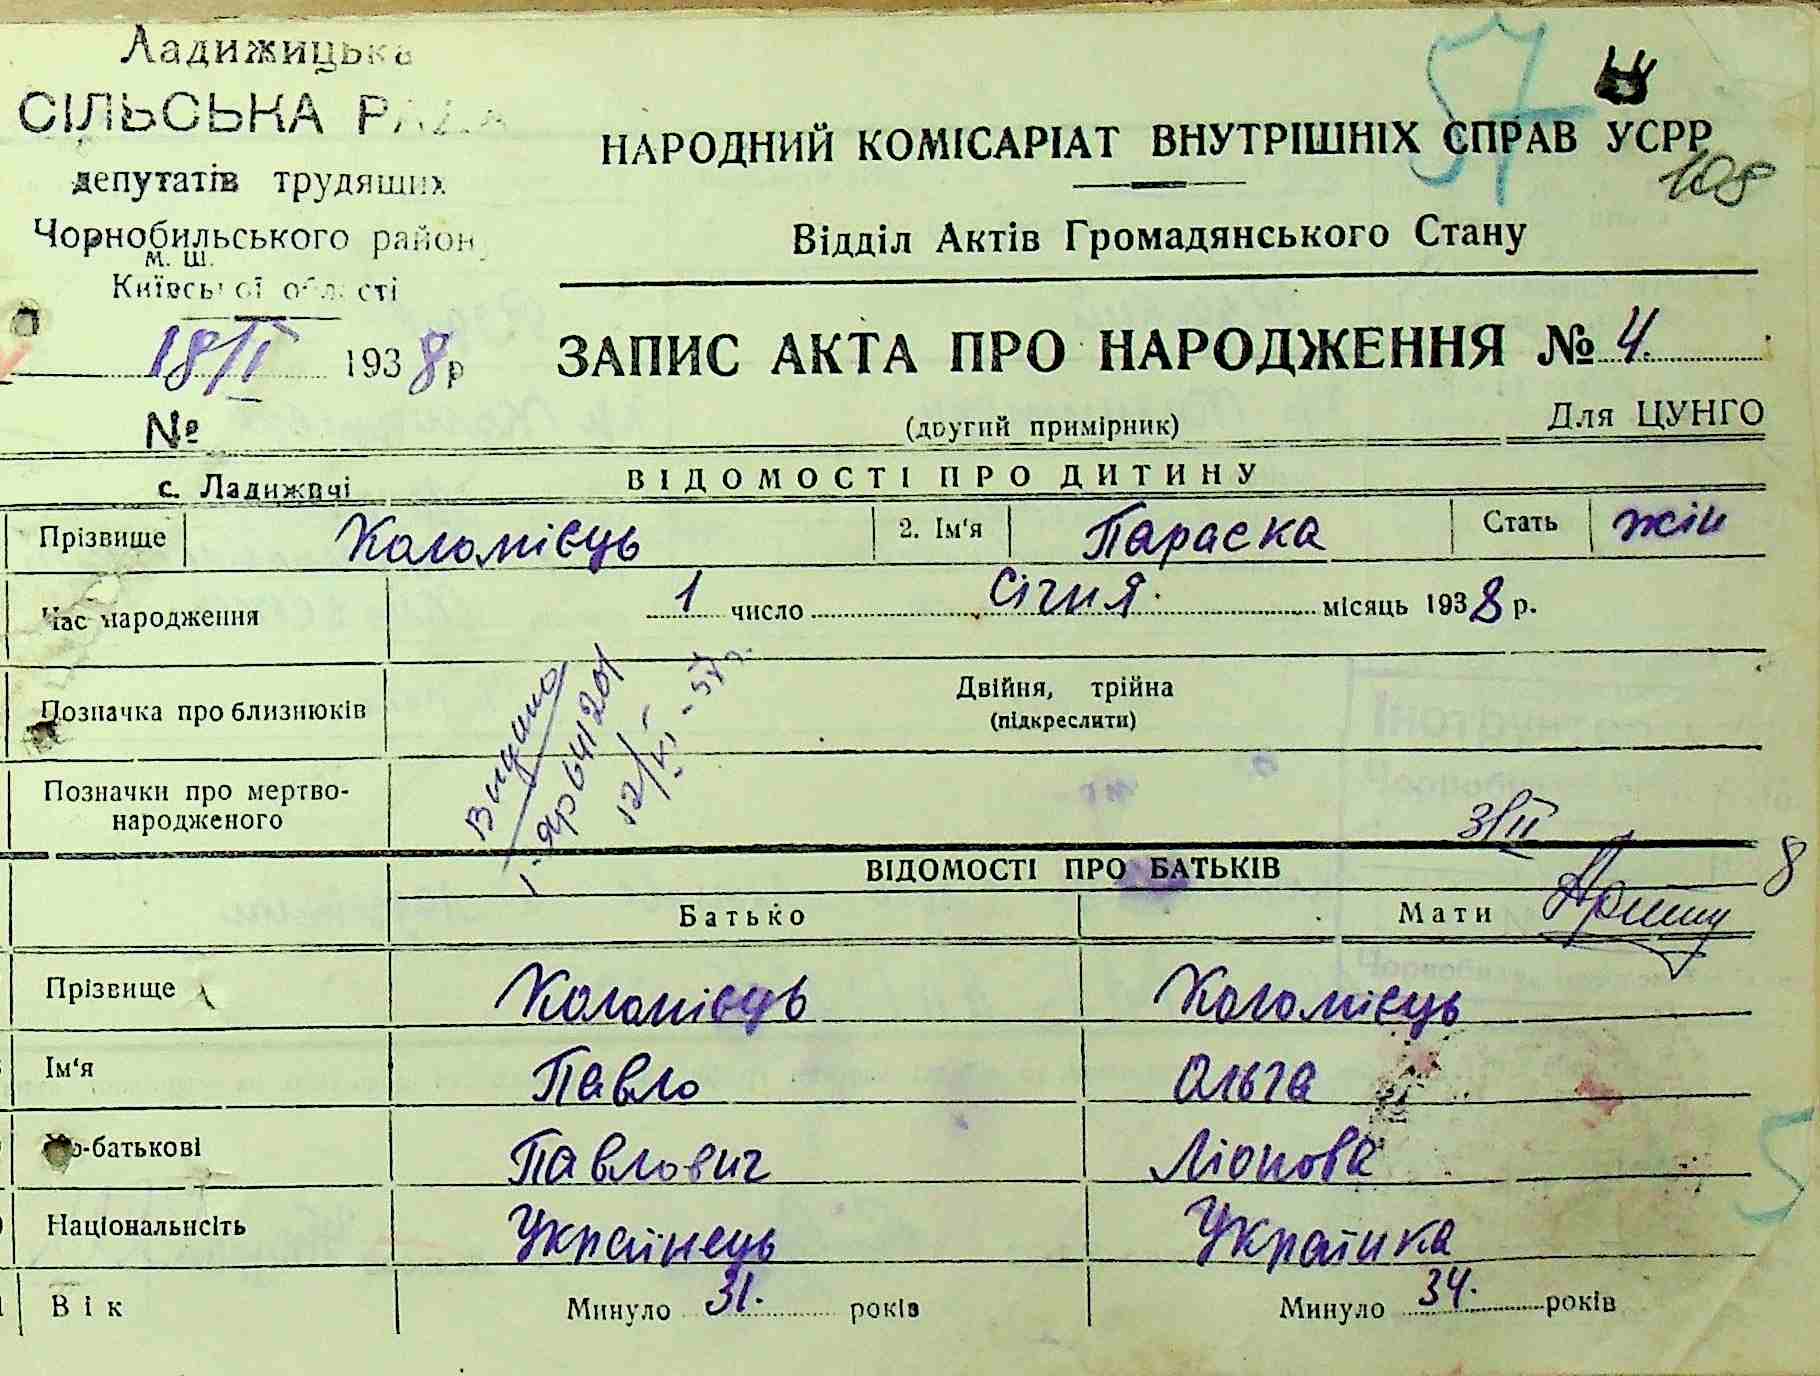 Ладижицька
СІЛЬСЬКА РАДА
депутатів трудящих
Чорнобильського району
м. ш.
Київської області
18/II 1938 р
№
с. Ладижичі
57
108
НАРОДНИЙ КОМІСАРІАТ ВНУТРІШНІХ СПРАВ УСРР
Відділ Актів Громадянського Стану
ЗАПИС АКТА ПРО НАРОДЖЕННЯ № 4.
(другий примірник) Для ЦУНГО
ВІДОМОСТІ ПРО ДИТИНУ
Прізвище Коломієць 2. Ім'я Параска Стать жін
Час народження 1 число Січня місяць 1938 р.
Позначка про близнюків Двійня, трійна
(підкреслити)
Позначки про мертво-
народженого
Видано
12/XI
3/II
8
ВІДОМОСТІ ПРО БАТЬКІВ
Батько Мати
Прізвище Коломієць Коломієць
Ім'я Павло Ольга
По-батькові Павлович Ліонова
5
Національність Українець Українка
Вік Минуло 31. років Минуло 34. років